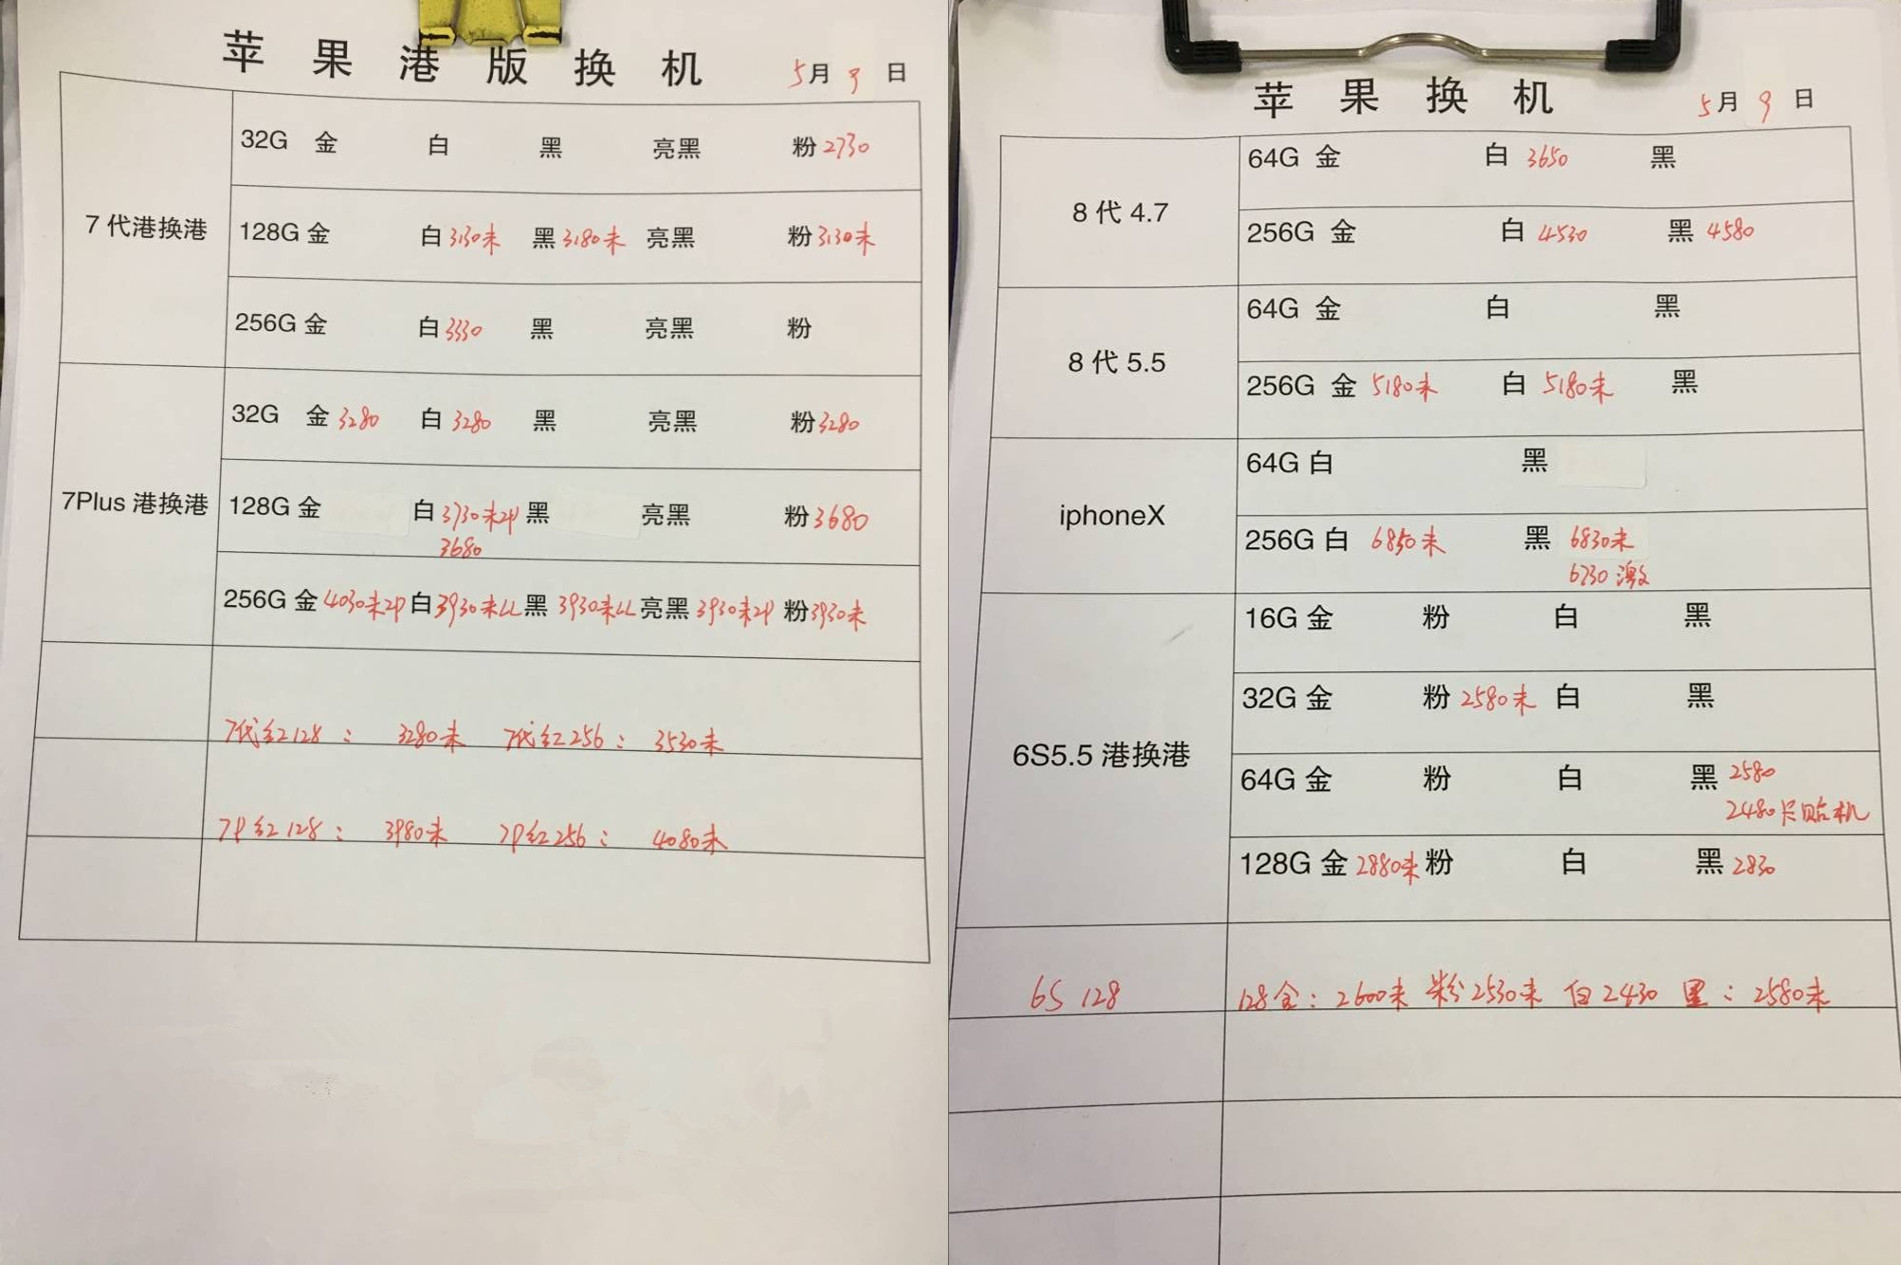 苹果港版换机 5月9日
7代港换港
32G 金 白 黑 亮黑 粉 2730
128G 金 白 3130未 黑 3180未 亮黑 粉 3130未
256G 金 白 3330 黑 亮黑 粉
7Plus 港换港
32G 金 3280 白 3280 黑 亮黑 粉 3280
128G 金 白 3730未2P 黑 亮黑 粉 3680
3680
256G 金 4030未2P 白 3930未LL 黑 3930未LL 亮黑 3930未2P 粉 3930未
7代红128： 3280未 7代红256： 3530未
7P红128： 3980未 7P红256： 4080未
苹果换机 5月9日
8代 4.7
64G 金 白 3650 黑
256G 金 白 4530 黑 4580
8代 5.5
64G 金 白 黑
256G 金 5180未 白 5180未 黑
iphoneX
64G 白 黑
256G 白 6850未 黑 6830未
6730激
6S5.5 港换港
16G 金 粉 白 黑
32G 金 粉 2580未 白 黑
64G 金 粉 白 黑 2580
2480卡贴机
128G 金 2880未 粉 白 黑 2830
6S 128 128金：2600未 粉2530未 白2430 黑：2580未